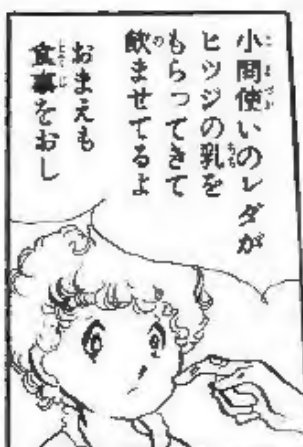 小間使いのレダが
ヒツジの乳を
もらってきて
飲ませてるよ
おまえも
食事をおし